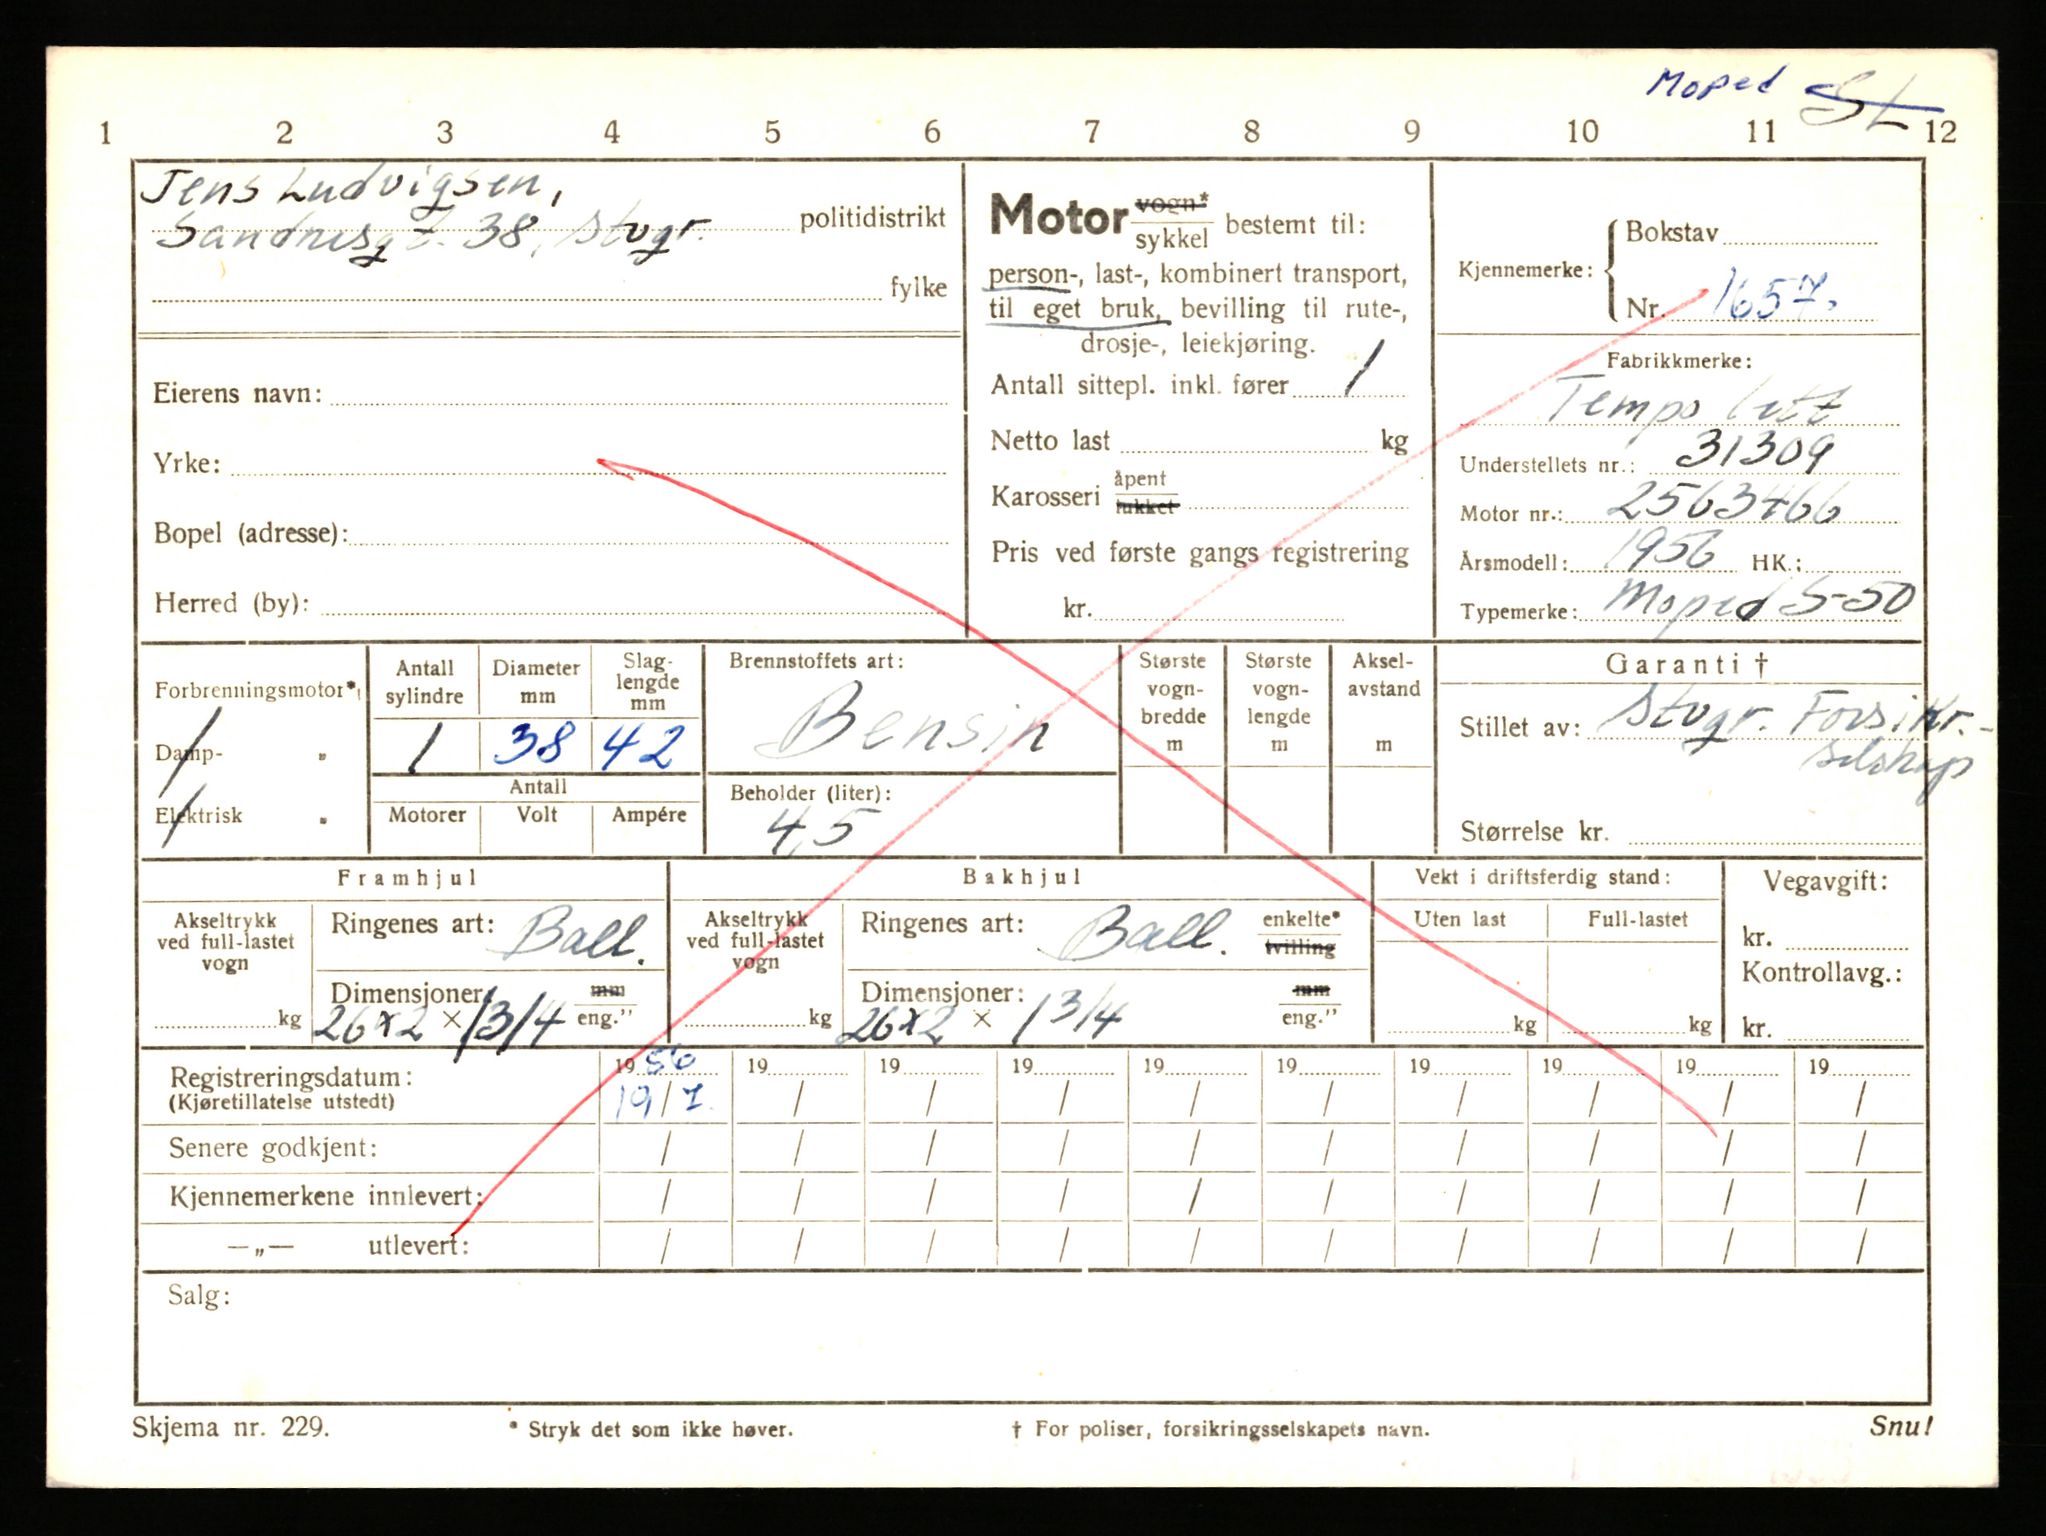 Moped SL
1 2 3 4 5 6 7 8 9 10 11 12
Jens Ludvigsen,
Sandnesgt. 38, Stvgr. politidistrikt
fylke
Eierens navn:
Yrke:
Bopel (adresse):
Herred (by):
Motor vogn* sykkel bestemt til:
person-, last-, kombinert transport,
til eget bruk, bevilling til rute-,
drosje-, leiekjøring.
Antall sittepl. inkl. fører 1
Netto last kg
Karosseri åpent lukket
Pris ved første gangs registrering
kr.
Kjennemerke: Bokstav
Nr. 1657.
Fabrikkmerke:
Tempo lett
Understellets nr.: 31309
Motor nr.: 2563466
Årsmodell: 1956 HK.:
Typemerke: Moped S-50
Forbrenningsmotor*
Damp- "
Elektrisk "
Antall sylindre
1
Diameter mm
38
Slag-lengde mm
42
Antall
Motorer Volt Ampére
Brennstoffets art:
Bensin
Beholder (liter):
4,5
Største vogn-bredde m
Største vogn-lengde m
Aksel-avstand m
Garanti †
Stillet av: Stvgr. Forsikr.-
selskap
Størrelse kr.
Framhjul
Akseltrykk
ved full-lastet
vogn
kg
Ringenes art: Ball.
Dimensjoner: mm
26x2 × 1 3/4 eng."
Bakhjul
Akseltrykk
ved full-lastet
vogn
kg
Ringenes art: Ball. enkelte* tvilling
Dimensjoner: mm
26x2 × 1 3/4 eng."
Vekt i driftsferdig stand:
Uten last Full-lastet
kg kg
Vegavgift:
kr.
Kontrollavg.:
kr.
19 56 19 19 19 19 19 19 19 19 19
Registreringsdatum: 19/7. / / / / / / / / /
(Kjøretillatelse utstedt)
Senere godkjent: / / / / / / / / / /
Kjennemerkene innlevert: / / / / / / / / / /
—„— utlevert: / / / / / / / / / /
Salg:
Skjema nr. 229. * Stryk det som ikke høver. † For poliser, forsikringsselskapets navn. Snu!